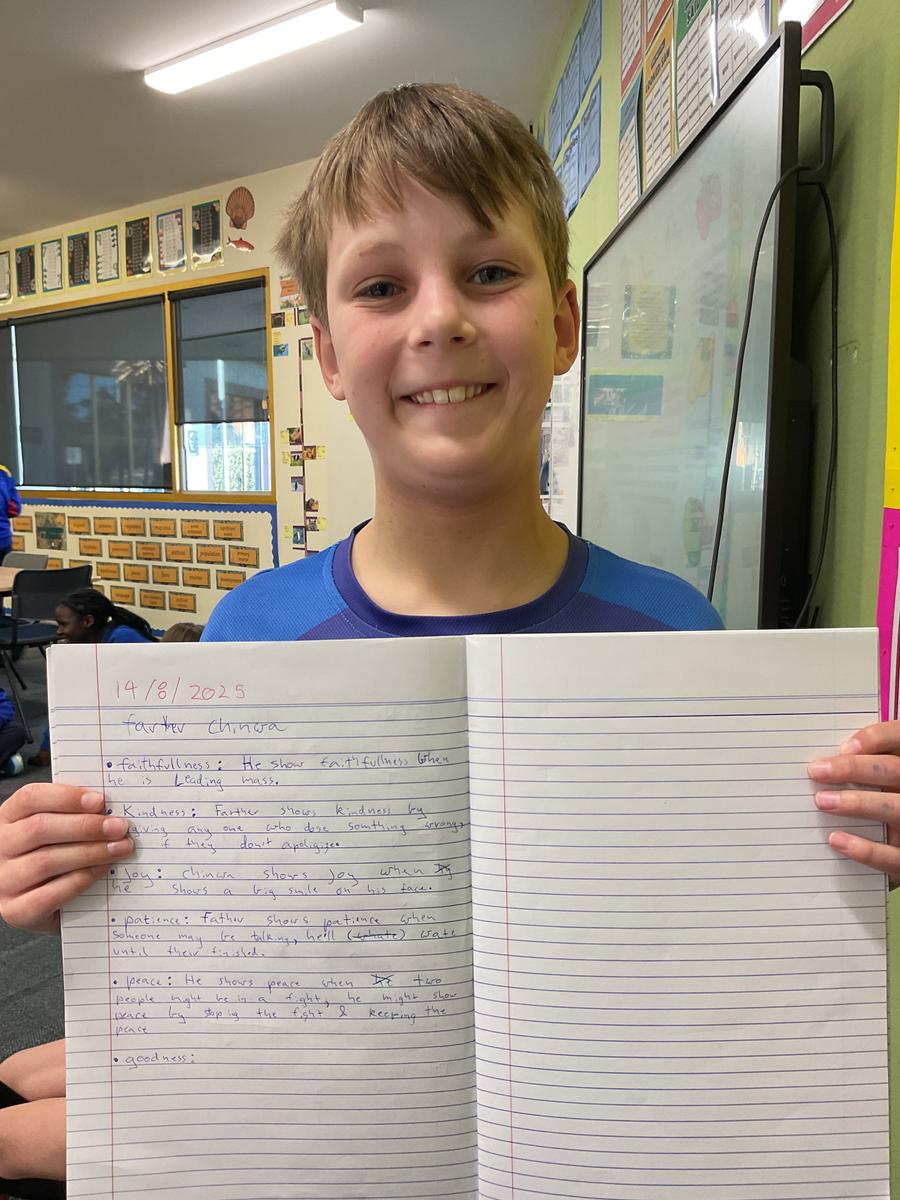 14/8/2025
farther chinwa
• faithfullness: He show faitifullness when
he is Leading mass.
• Kindness: Farther shows kindness by
giving any one who dose somthing wrong,
if they don't apoligize.
• Joy: chinwa shows Joy when
he shows a big smile on his face.
• patience: Father shows patience when
someone may be talking, he'll (whate) wate
until their finished.
• peace: He shows peace when two
people might be in a fight, he might show
peace by stoping the fight & keeping the
peace
• goodness:
population